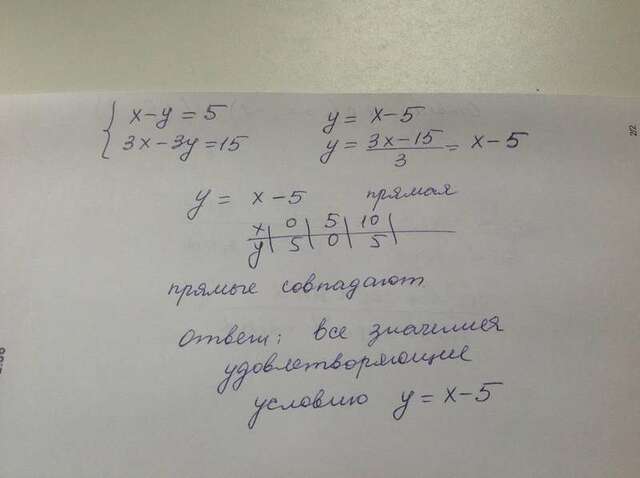 { x-y=5 y= x-5
3x-3y=15 y= 3x-15/3 = x-5
y= x-5 прямая
x| 0 | 5 | 10 |
y| 5 | 0 | 5 |
прямые совпадают
Ответ: все значения
удовлетворяющие
условию y=x-5